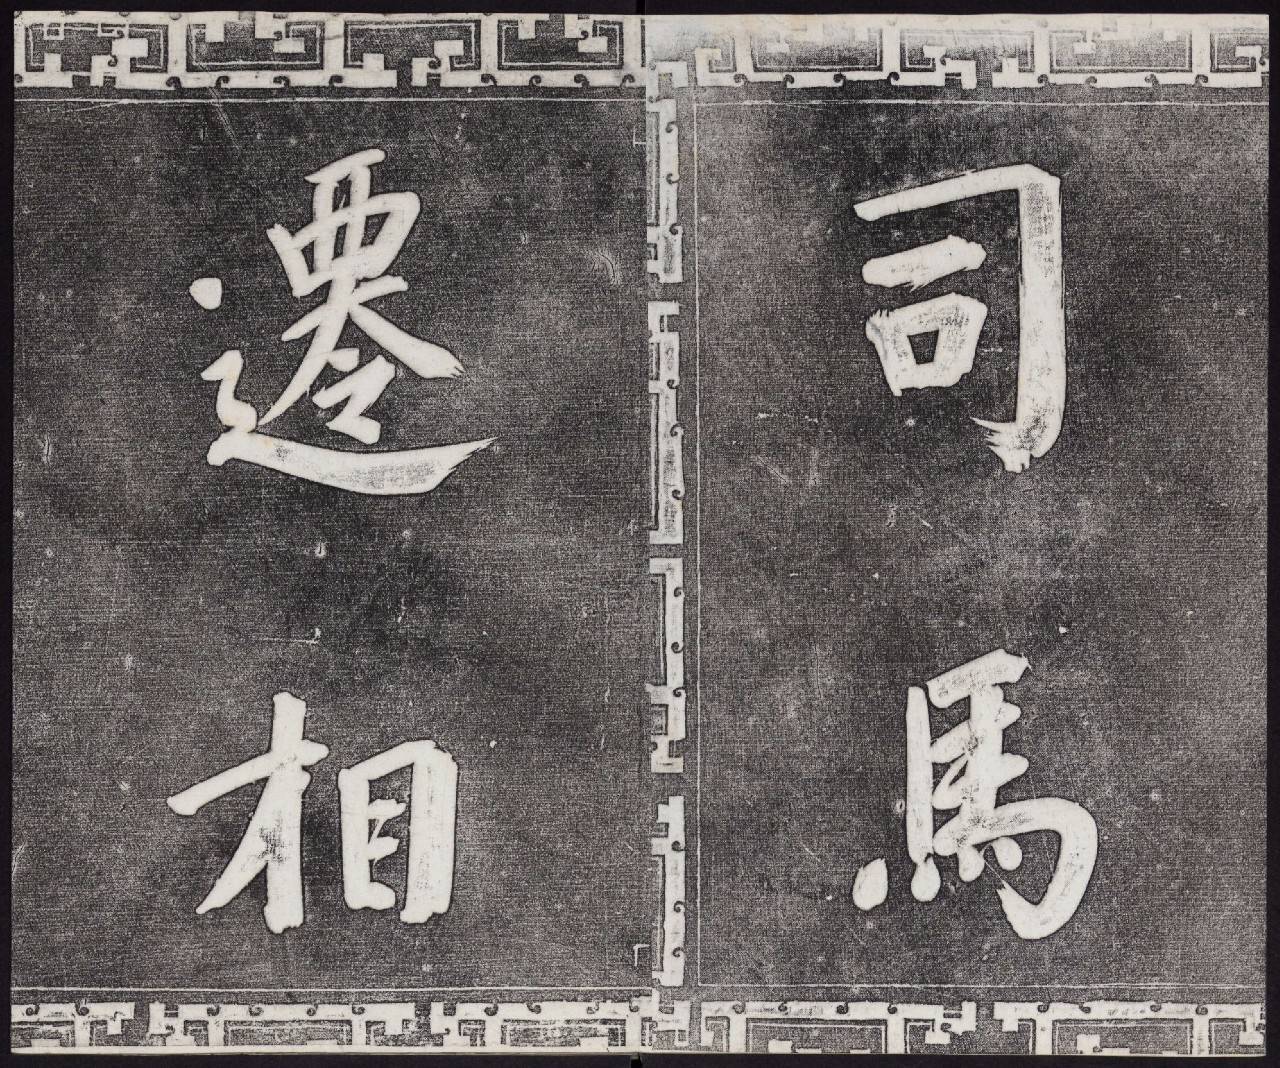 司馬
遷相